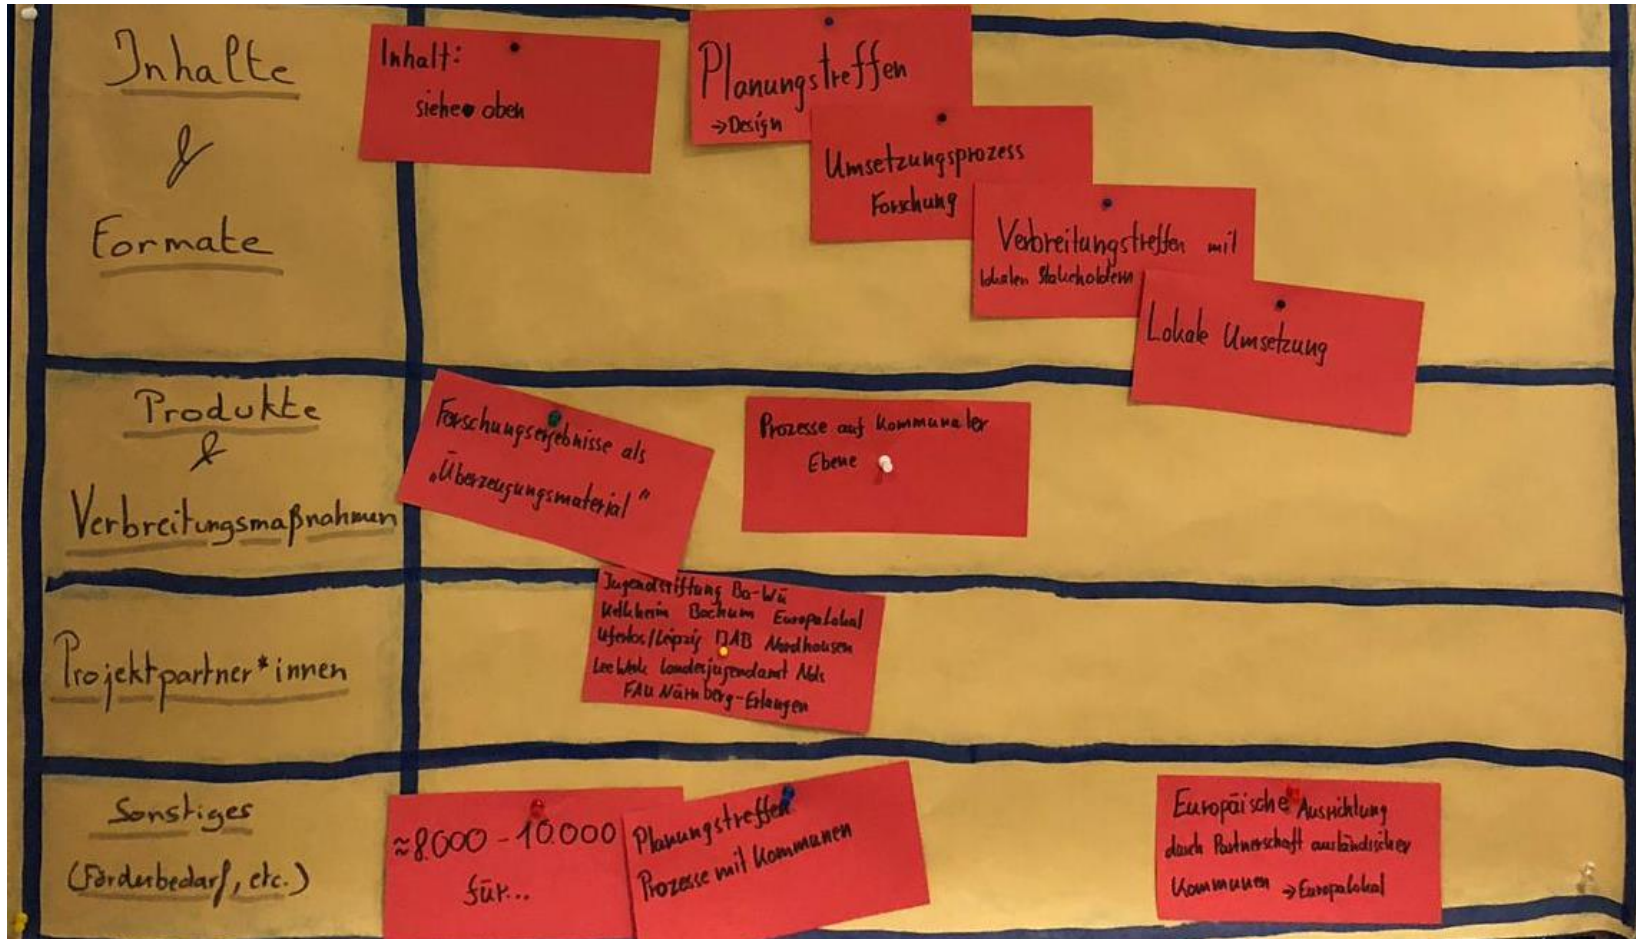 Inhalte
&
Formate
Inhalt:
siehe oben
Planungstreffen
→Design
Umsetzungsprozess
Forschung
Verbreitungstreffen mit
lokalen Stakeholdern
Lokale Umsetzung
Produkte
&
Verbreitungsmaßnahmen
Forschungsergebnisse als
„Überzeugungsmaterial“
Prozesse auf Kommunaler
Ebene
Projektpartner*innen
Jugendstiftung Ba-Wü
Kelkheim Bochum EuropaLokal
Uferlos/Leipzig DAB Nordhausen
Landesjugendamt Nds
FAU Nürnberg-Erlangen
Sonstiges
(Förderbedarf, etc.)
≈8.000 - 10.000
für...
Planungstreffen
Prozesse mit Kommunen
Europäische Ausrichtung
durch Partnerschaft ausländischer
Kommunen →EuropaLokal